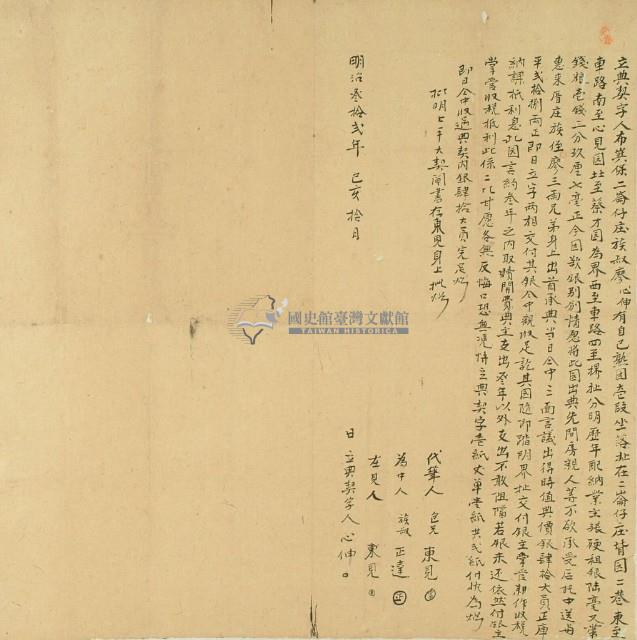 立典契字人布嶼保二崙仔庄族叔廖心伸有自己熟園壹段坐落址在二崙仔庄背園二巷東至
車路南至心見園北至蔡才園為界西至車路四至界址分明歷年配納業主張硬租銀陸毫又業
錢糧壹錢二分玖厘七毫正今因欠銀別創情愿將此園出典先問房親人等不欲承受后托中送与
惠來厝庄族侄廖三兩兄弟身上出首承典當日仝中三面言議出得時值典價銀肆拾大員正庫
平貳拾捌兩正即日立字兩相交付其銀仝中親收足訖其園隨即踏明界址交付銀主掌管耕作收稅
納課抵利息此園言約叁年之內取贖開費典主支出叁年以外支出不敢阻擋若銀未还依然付銀主
掌管收稅抵利此係二比甘愿各無反悔口恐無憑特立典契字壹紙丈單壹紙共貳紙付执為炤
即日仝中收過典契內銀肆拾大員完足炤
批明七平大契鬮書存東見身上批炤
明治叁拾貳年 己亥 拾月
代筆人 兄 東見
為中人 族叔 正達 正
在見人 東見
日立典契字人 心伸
國史館臺灣文獻館
TAIWAN HISTORICA